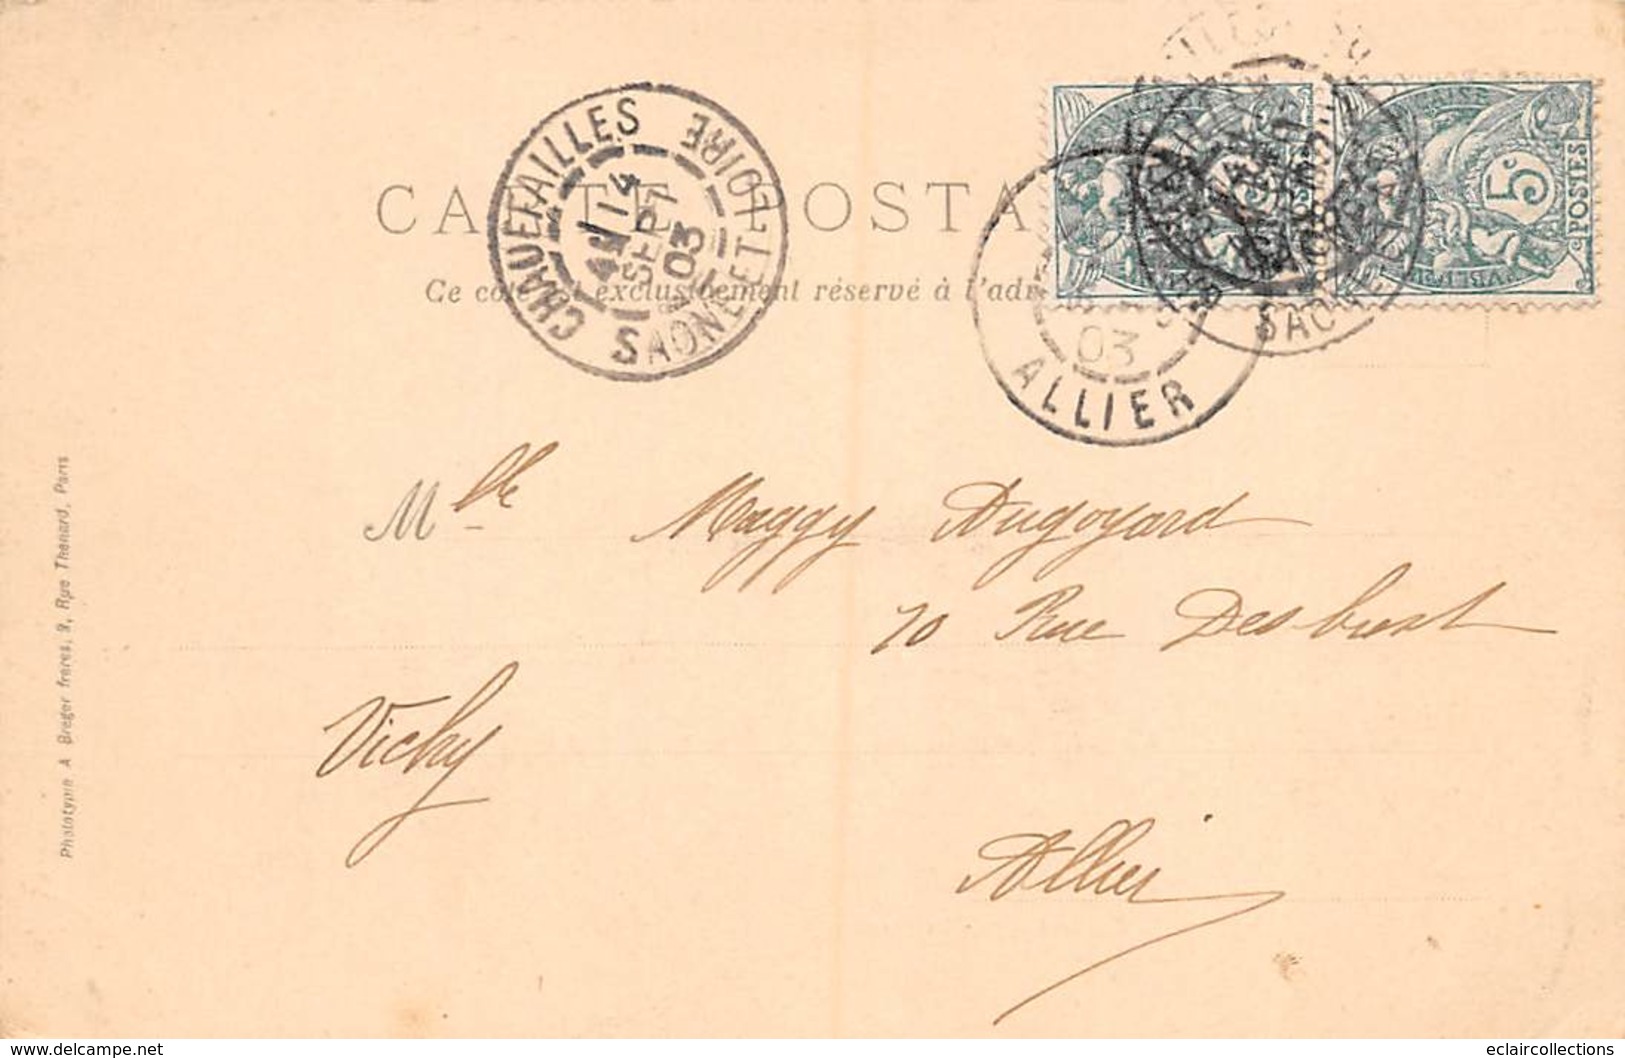 CARTE POSTA
Ce côté est exclusivement réservé à l'adr
CHAUFFAILLES
SAONE-ET-LOIRE
14
SEPT
03
5c
POSTES
ALLIER
03
SAONE
Mlle Maggy Dugoyard
70 Rue Desbrest
Vichy
Allier
Phototypie A Breger frères, 9, Rue Thenard, Paris
www.delcampe.net
eclaircollections